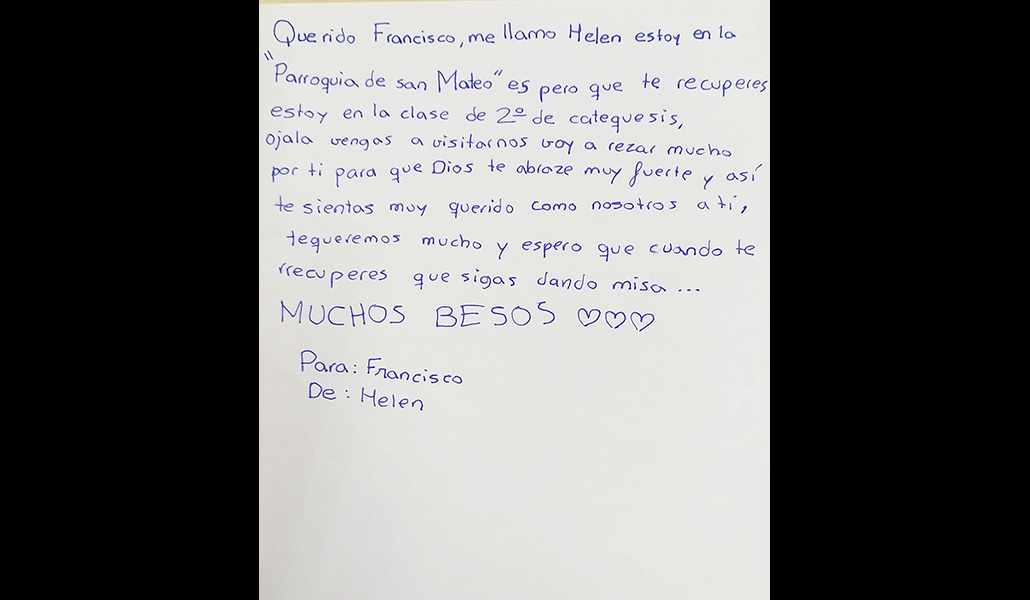 Querido Francisco, me llamo Helen estoy en la
"Parroquia de san Mateo" es pero que te recuperes
estoy en la clase de 2º de catequesis,
ojala vengas a visitarnos voy a rezar mucho
por ti para que Dios te abraze muy fuerte y así
te sientas muy querido como nosotros a tí,
tequeremos mucho y espero que cuando te
rrecuperes que sigas dando misa...
MUCHOS BESOS ♡♡♡
Para: Francisco
De: Helen